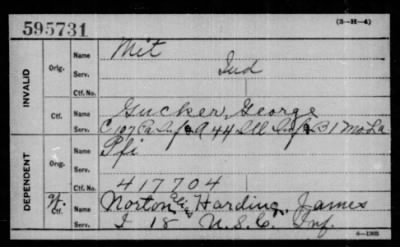 595731
(3-H-4)
INVALID
Orig.
Name
Mit
Serv.
Ind
Ctf. No.
Ctf.
Name
Gucker, George
Serv.
C 107 Pa Inf & A 44 Ill Inf & B 1 Mo La
DEPENDENT
Orig.
Name
Serv.
Ctf. No.
417704
Ctf.
Name
Norton alias Harding, James
Serv.
I 18 U.S.C. Inf.
6-1205